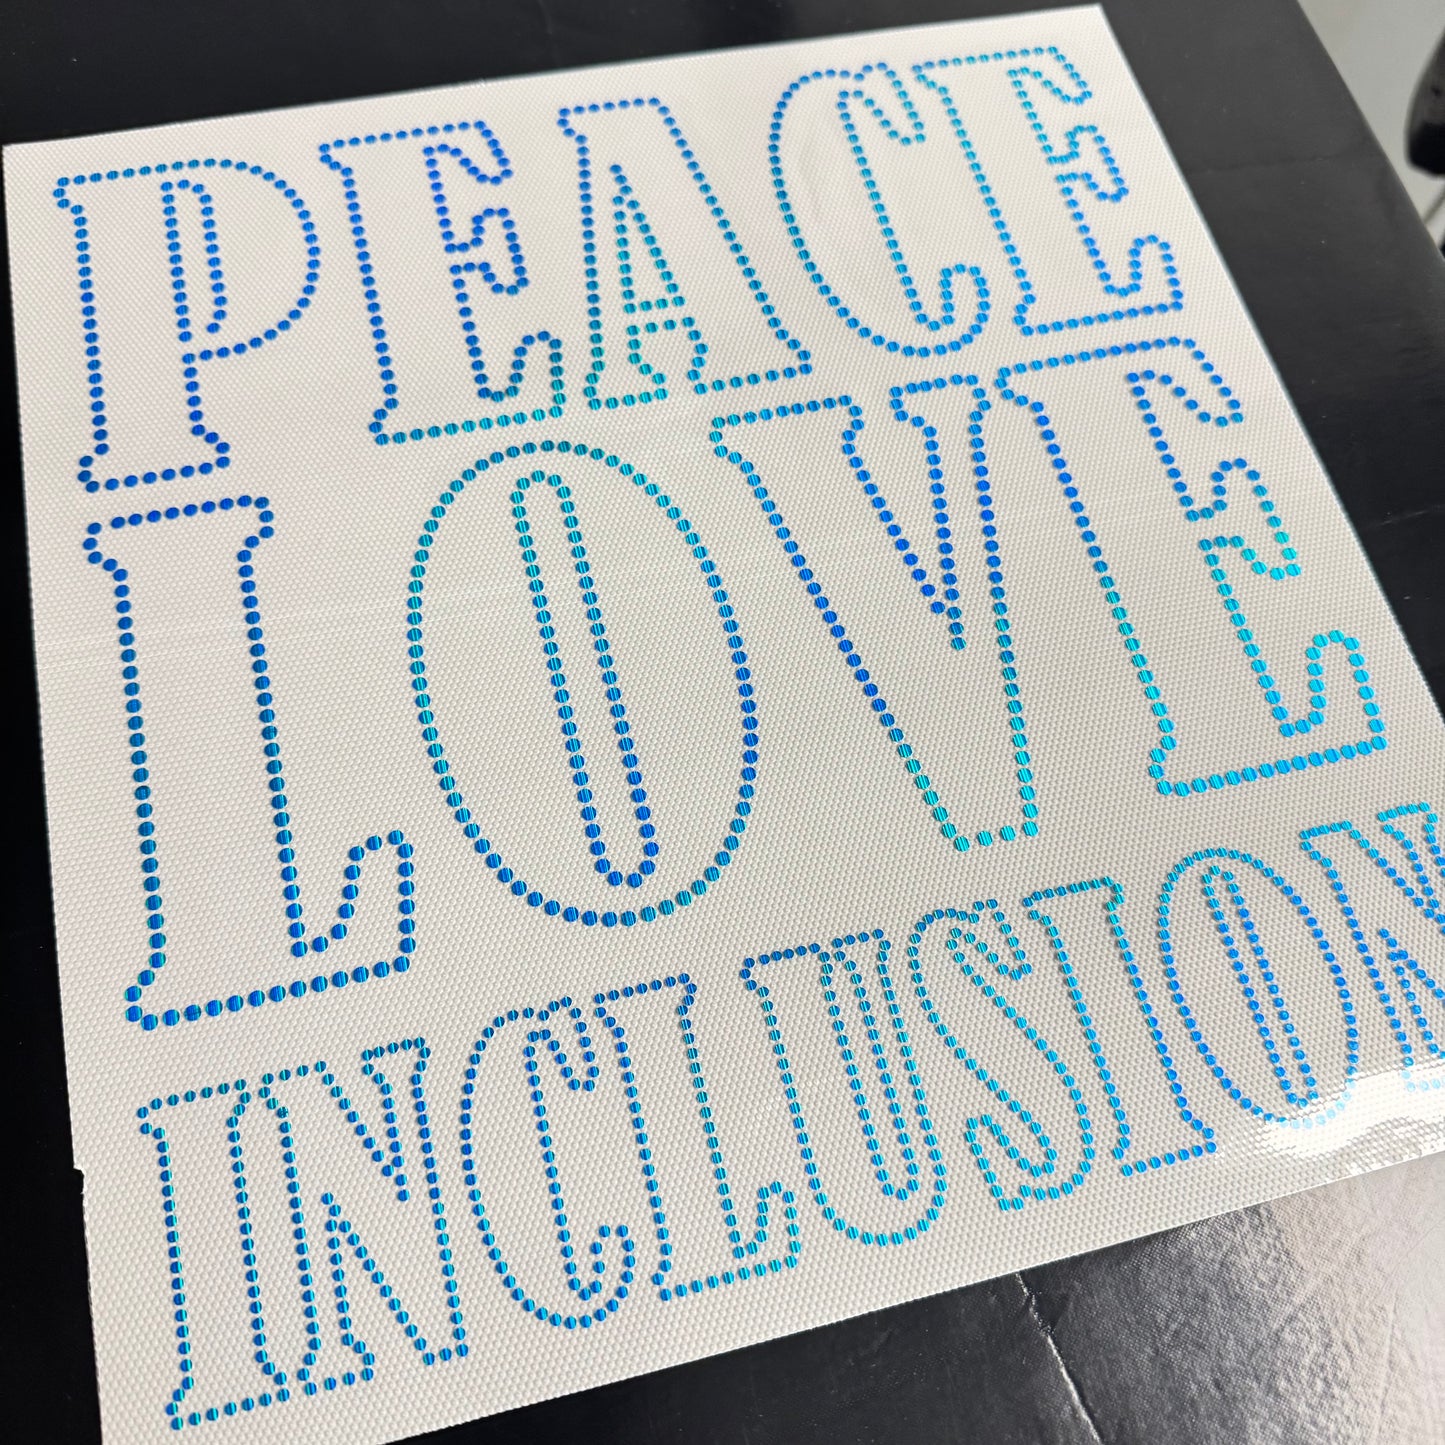 PEACE
LOVE
INCLUSION